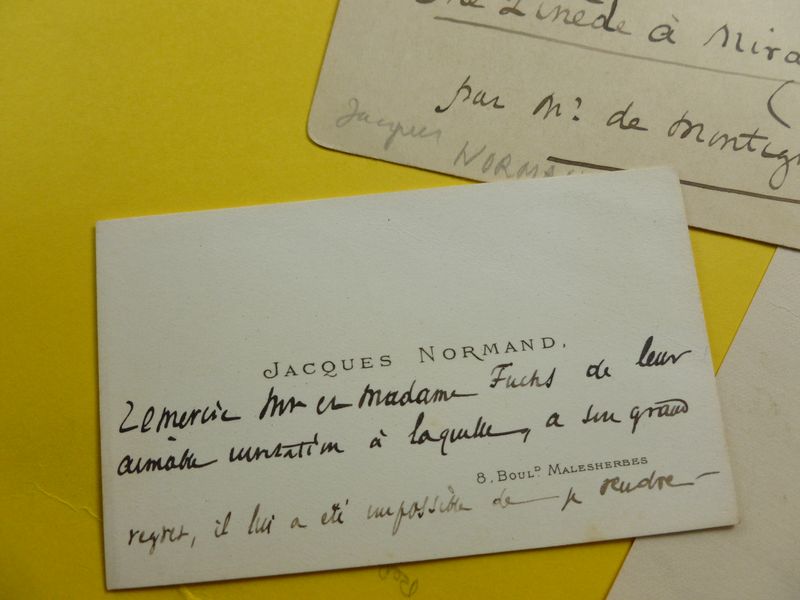 Une Zinède à Mira
par Mr. de Montign
Jacques
NORMAN
JACQUES NORMAND,
remercie Mr et Madame Fuchs de leur
aimable invitation à laquelle, à son grand
8, BOULD MALESHERBES
regret, il lui a été impossible de se rendre